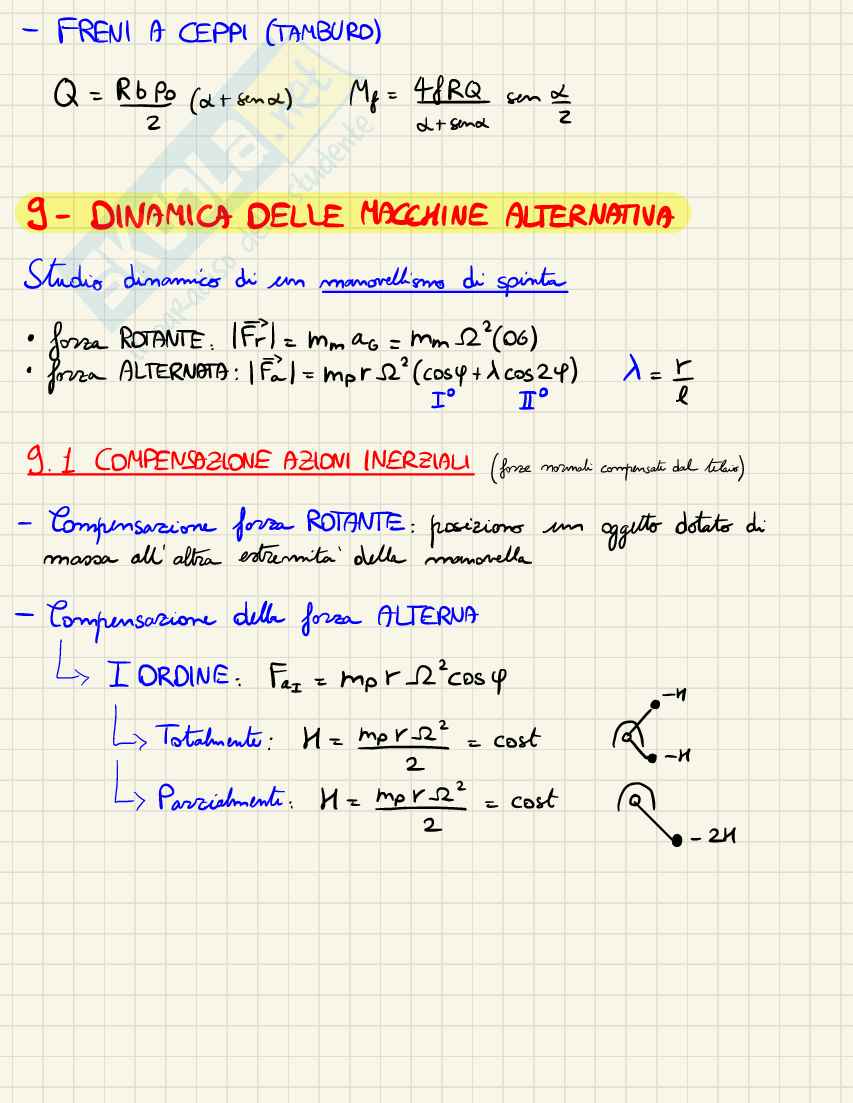 - FRENI A CEPPI (TAMBURO)
Q = R b p₀ / 2 (α + sen α)   M_f = 4fRQ / α + sen α sen α/2
9 - DINAMICA DELLE MACCHINE ALTERNATIVA
Studio dinamico di un manovellismo di spinta
• forza ROTANTE: |F⃗r| = m_m a_G = m_m Ω² (OG)
• forza ALTERNATA: |F⃗a| = m_p r Ω² (cosφ + λ cos2φ)   λ = r / l
I° II°
9.1 COMPENSAZIONE AZIONI INERZIALI (forze normali compensate dal telaio)
- Compensazione forza ROTANTE: posiziono un oggetto dotato di
massa all'altra estremità della manovella
- Compensazione della forza ALTERNA
I ORDINE: F_aI = m_p r Ω² cos φ
-H
Totalmente: H = m_p r Ω² / 2 = cost
-H
Parzialmente: H = m_p r Ω² / 2 = cost
- 2H
SKUOLA.net